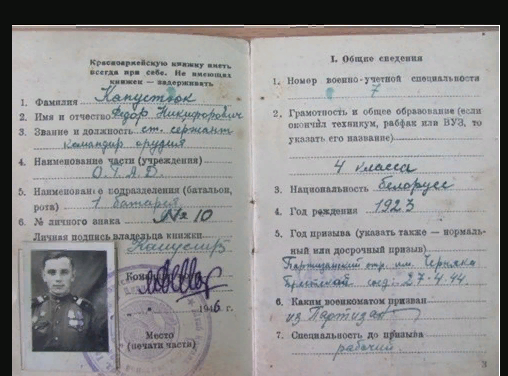 Красноармейскую книжку иметь
всегда при себе. Не имеющих
книжек — задерживать
1. Фамилия Капустюк
2. Имя и отчество Федор Никифорович
3. Звание и должность ст. сержант
командир орудия
4. Наименование части (учреждения)
О.Т.А.Д.
5. Наименование подразделения (батальон,
рота) 1 батарея
6. № личного знака № 10
Личная подпись владельца книжки
1946 г.
Место
(печати части)
I. Общие сведения
1. Номер военно-учетной специальности
7
2. Грамотность и общее образование (если
окончил техникум, рабфак или ВУЗ, то
указать его название)
4 класса
3. Национальность белорус
4. Год рождения 1923
5. Год призыва (указать также — нормаль-
ный или досрочный призыв)
Партизанский отр. им. Черняка
Брестской соед. 27-4.44.
6. Каким военкоматом призван
из Партизан
7. Специальность до призыва
рабочий
3